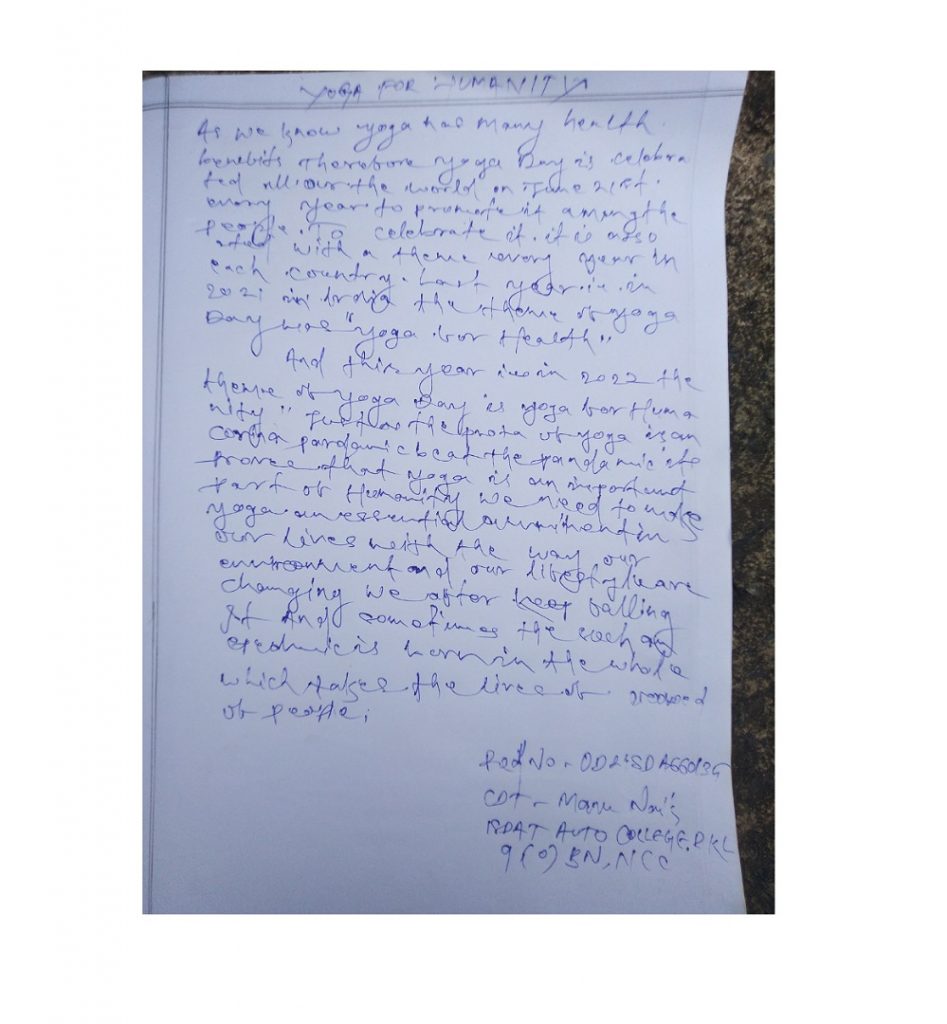 YOGA FOR HUMANITY
As we know yoga has many health
benefits Therefore yoga Day is celebra
ted all our the world on June 21st.
every year to promote it among the
people. To celebrate it. it is also
with a theme every year in
each country. Last year i.e. in
2021 in India the theme of yoga
Day was "yoga for Health"
And this year i.e in 2022 the
theme of yoga Day is yoga for Huma
nity" Just as the of yoga is an
corona pandamic beat the pandamic it
proves that yoga is an important
part of Humanity we need to make
yoga an essential in
our lives with the way our
environment and our lifestyle are
changing we after keep falling
And sometimes the such an
epedmic is born in the whole
which takes the lives of
of people,
Red No - 
CDT - Manu
AUTO COLLEGE, RKL
9 (O) BN, NCC